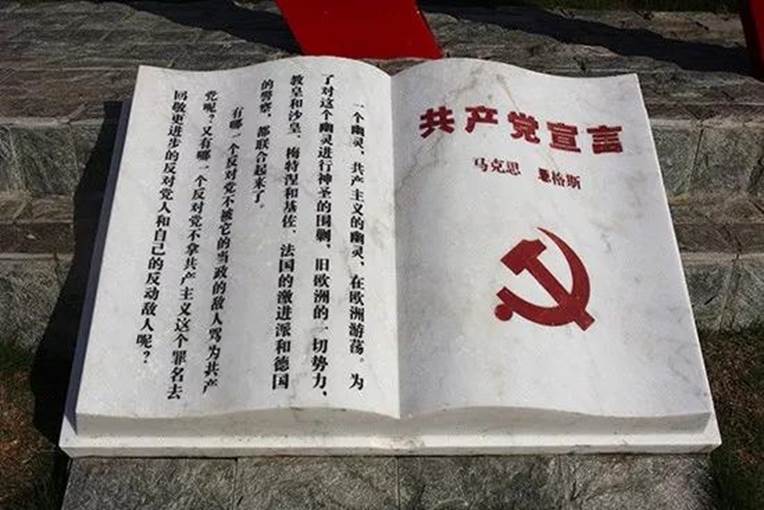 共产党宣言
马克思 恩格斯
一个幽灵，共产主义的幽灵，在欧洲游荡。为
了对这个幽灵进行神圣的围剿，旧欧洲的一切势力，
教皇和沙皇，梅特涅和基佐，法国的激进派和德国
的警察，都联合起来了。
有哪一个反对党不被它的当政的敌人骂为共产
党呢？又有哪一个反对党不拿共产主义这个罪名去
回敬更进步的反对党人和自己的反动敌人呢？